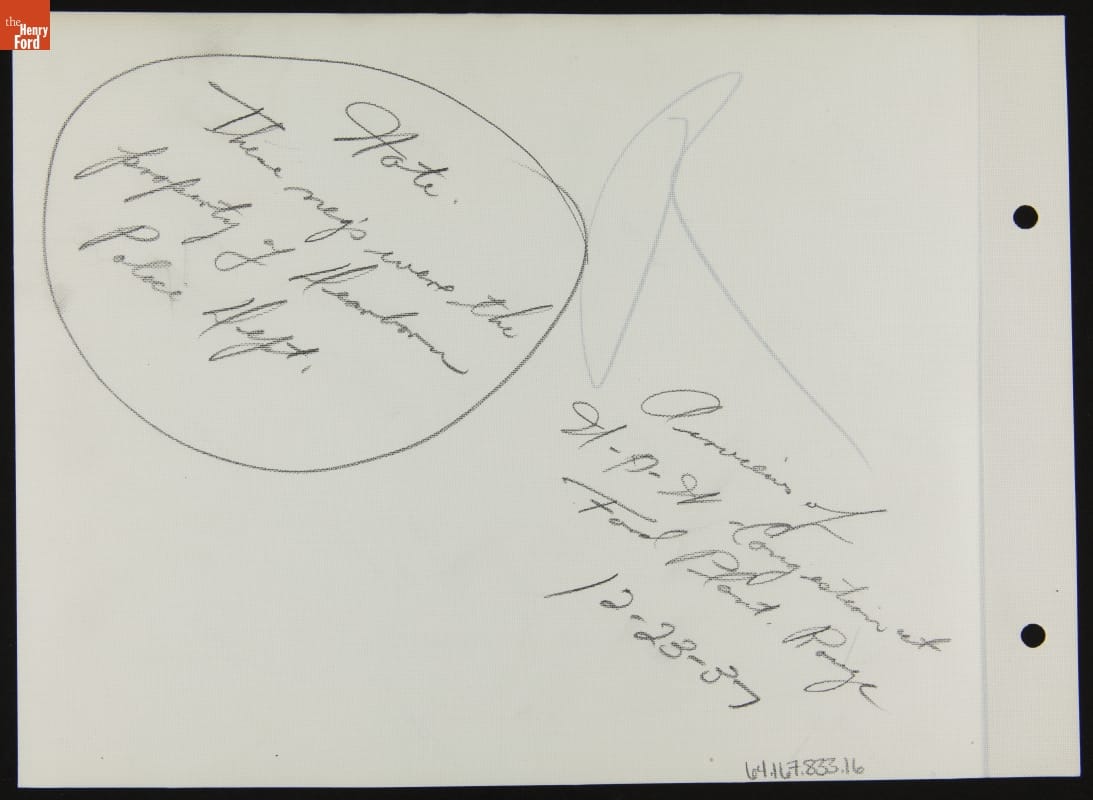 the
Henry
Ford
Note.
These neg's were the
property of Dearborn
Police Dept.
of
Congestion at
Ford Plant. Rouge
12-23-37
64.167.833.16